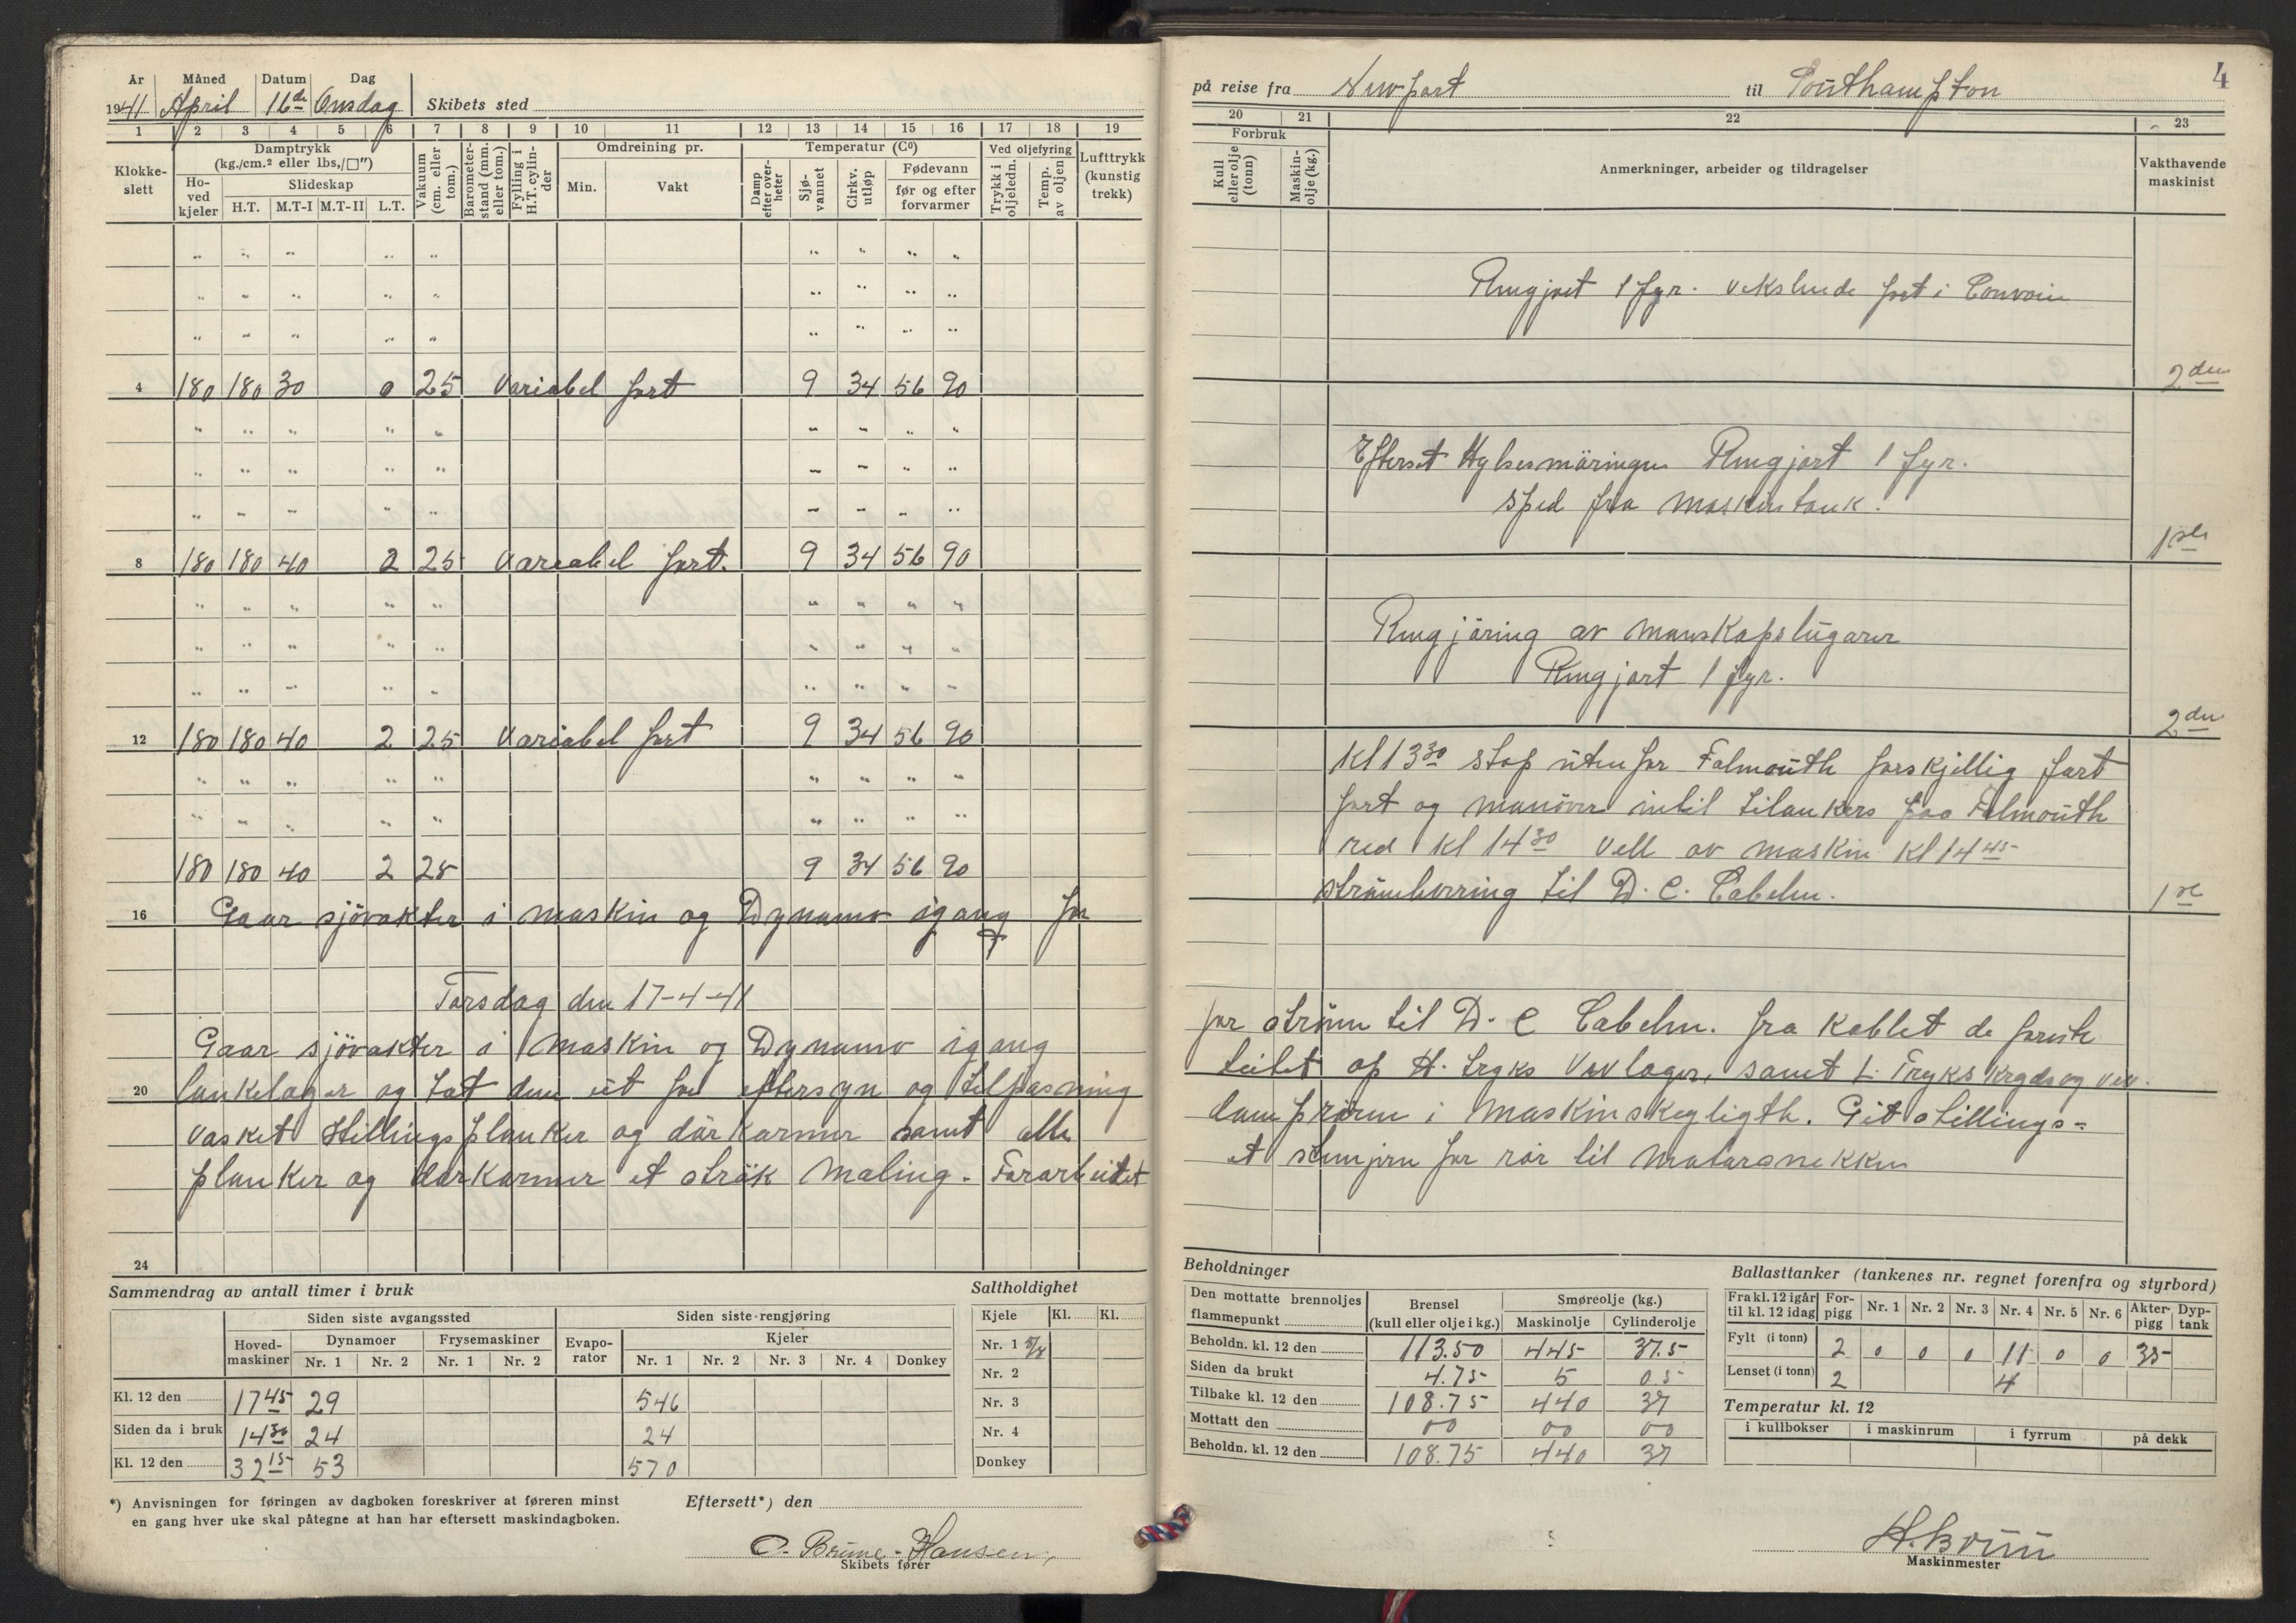 År Måned Datum Dag
1941 April 16de Onsdag Skibets sted
1 2 3 4 5 6 7 8 9 10 11 12 13 14 15 16 17 18 19
Klokke-slett Damptrykk (kg./cm.² eller lbs./□") Vakuum (cm. eller tom.) Barometer-stand (mm. eller tom.) Fylling i H.T. cylin-der Omdreining pr. Temperatur (C⁰) Ved oljefyring Lufttrykk (kunstig trekk)
Ho-ved kjeler Slideskap Min. Vakt Damp efter over-heter Sjø-vannet Cirkv. utløp Fødevann før og efter forvarmer Trykk i oljeledn. Temp. av oljen
H.T. M.T-I M.T-II L.T.
" " " " " " " " "
" " " " " " " " "
" " " " " " " " "
4 180 180 30 0 25 Variabel fart 9 34 56 90
" " " " " " " " "
" " " " " " " " "
" " " " " " " " "
8 180 180 40 2 25 Variabel fart. 9 34 56 90
" " " " " " " " "
" " " " " " " " "
" " " " " " " " "
12 180 180 40 2 25 Variabel fart 9 34 56 90
" " " " " " " " "
" " " " " " " " "
180 180 40 2 25 9 34 56 90
16 Gaar sjövakter i maskin og Dynamo igang for
Torsdag den 17-4-41
Gaar sjövakter i Maskin og Dynamo igang
20 lankelager og tat dem ut for eftersyn og tilpasning
vasket stillingsplanker og dörkarmer samt alle
planker og dörkarmer et strök maling. Forarbeidet
24
Sammendrag av antall timer i bruk
Siden siste avgangssted Siden siste rengjøring
Hoved-maskiner Dynamoer Frysemaskiner Evapo-rator Kjeler
Nr. 1 Nr. 2 Nr. 1 Nr. 2 Nr. 1 Nr. 2 Nr. 3 Nr. 4 Donkey
Kl. 12 den 17 45 29 546
Siden da i bruk 14 30 24 24
Kl. 12 den 32 15 53 570
Saltholdighet
Kjele Kl. Kl.
Nr. 1
Nr. 2
Nr. 3
Nr. 4
Donkey
*) Anvisningen for føringen av dagboken foreskriver at føreren minst
en gang hver uke skal påtegne at han har eftersett maskindagboken.
Eftersett*) den
O. Brüne-Hansen,
Skibets fører
4
på reise fra Newport til Southampton
20 21 22 23
Forbruk
Kull eller olje (tonn) Maskin-olje (kg.) Anmerkninger, arbeider og tildragelser Vakthavende maskinist
Rengjort 1 fyr. vekslende fart i Convoin
2den
Efterset Hylsesmöringen Rengjort 1 fyr.
sped fra maskintank.
1ste
Rengjöring av manskapslugarer
Rengjort 1 fyr.
2den
Kl 13 30 stop utenfor Falmouth forskjellig fart
fart og manöver intil tilankers paa Falmouth
red kl 14 30 Vell av maskin kl 14 45
strömleverring til D. C. Cabelen.
1ste
for ström til D. C Cabelen. fra koblet de
op H. tryks Veivlager, samt L. Tryks
i Maskinskeyligth. Git stillings=
et stemjern for rör til Motorsnekken
Beholdninger
Den mottatte brennoljes flammepunkt Brensel (kull eller olje i kg.) Smøreolje (kg.)
Maskinolje Cylinderolje
Beholdn. kl. 12 den 113.50 445 37.5
Siden da brukt 4.75 5 0.5
Tilbake kl. 12 den 108.75 440 37
Mottatt den 00 00 00
Beholdn. kl. 12 den 108.75 440 37
Ballasttanker (tankenes nr. regnet forenfra og styrbord)
Fra kl. 12 igår til kl. 12 idag For-pigg Nr. 1 Nr. 2 Nr. 3 Nr. 4 Nr. 5 Nr. 6 Akter-pigg Dyp-tank
Fylt (i tonn) 2 0 0 0 11 0 0 35
Lenset (i tonn) 2 4
Temperatur kl. 12
i kullbokser i maskinrum i fyrrum på dekk
H. Bruun
Maskinmester